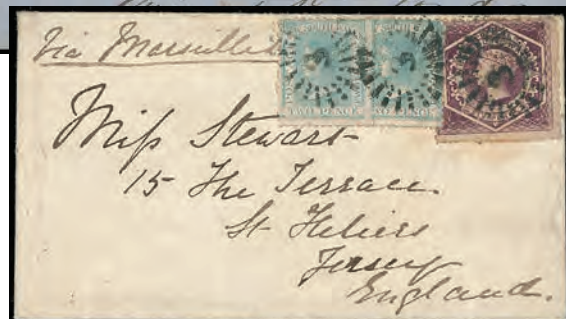 Via Marseilles
TWO PENCE TWO PENCE
3 3 3
Miss Stewart
15 The Terrace
St Heliers
Jersey
England.